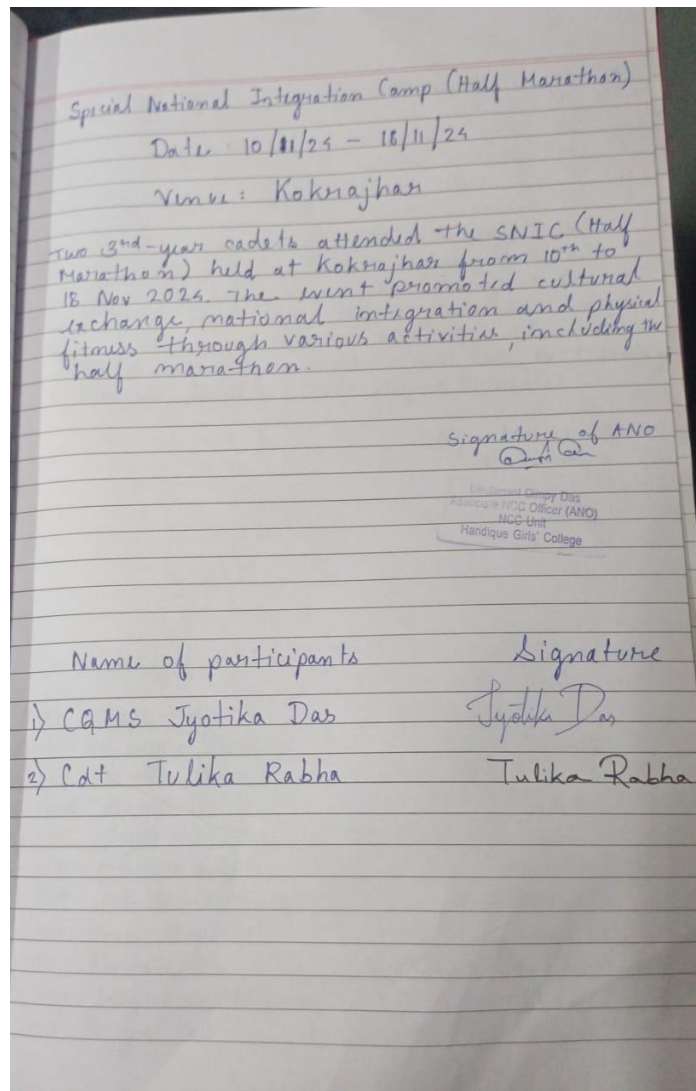 Special National Integration Camp (Half Marathon)
Date: 10/11/24 - 18/11/24
Venue: Kokrajhar
Two 3rd-year cadets attended the SNIC (Half
Marathon) held at Kokrajhar from 10th to
18 Nov 2024. The event promoted cultural
exchange, national integration and physical
fitness through various activities, including the
half marathon.
Signature of ANO
Lieutenant Dimpy Das
Associate NCC Officer (ANO)
NCC Unit
Handique Girls' College
Name of participants Signature
1) CQMS Jyotika Das Jyotika Das
2) Cdt Tulika Rabha Tulika Rabha